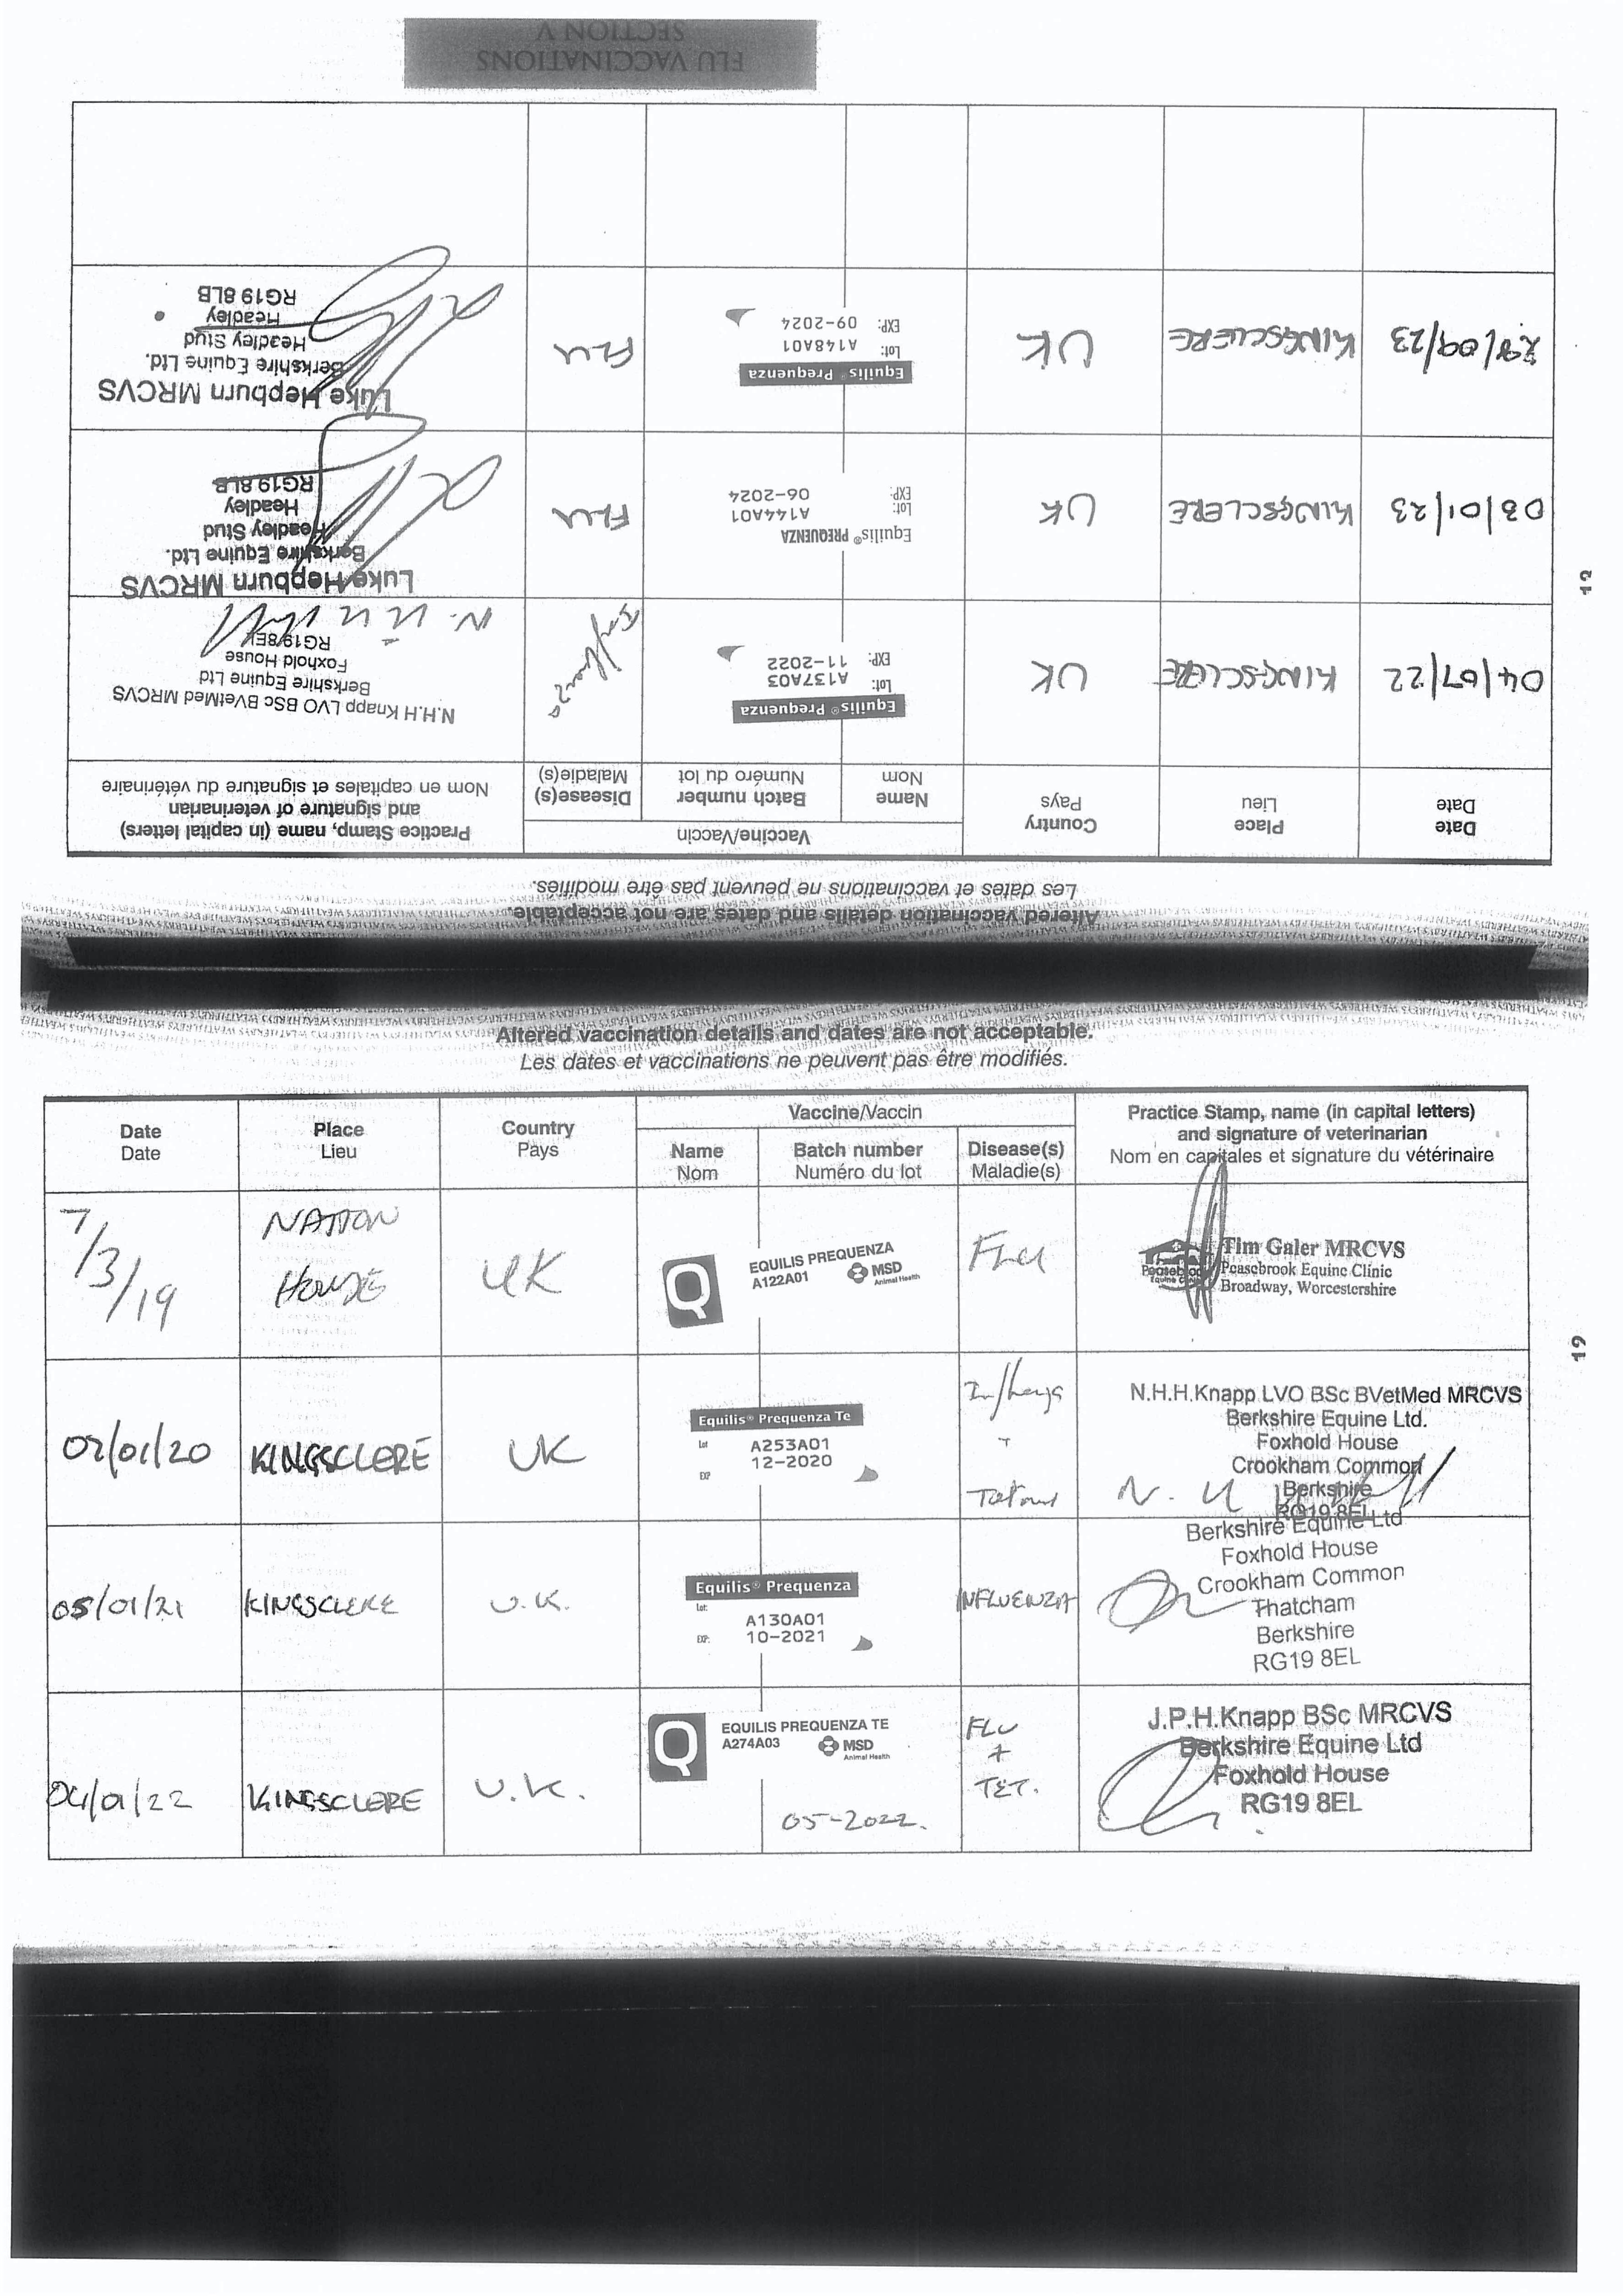 Altered vaccination details and dates are not acceptable.
Les dates et vaccinations ne peuvent pas être modifiés.
Date
Date
Place
Lieu
Country
Pays
Vaccine/Vaccin
Name
Nom
Batch number
Numéro du lot
Disease(s)
Maladie(s)
Practice Stamp, name (in capital letters)
and signature of veterinarian
Nom en capitales et signature du vétérinaire
7/3/19
NATION
HOUSE
UK
EQUILIS PREQUENZA
A122A01
MSD
Animal Health
FLU
Tim Galer MRCVS
Peasebrook Equine Clinic
Broadway, Worcestershire
02/01/20
KINGSCLERE
UK
Equilis® Prequenza Te
Lot A253A01
EXP 12-2020
N.H.H.Knapp LVO BSc BVetMed MRCVS
Berkshire Equine Ltd.
Foxhold House
Crookham Common
Berkshire
RG19 8EL
05/01/21
KINGSCLERE
U.K.
Equilis® Prequenza
Lot: A130A01
EXP: 10-2021
INFLUENZA
Berkshire Equine Ltd
Foxhold House
Crookham Common
Thatcham
Berkshire
RG19 8EL
04/01/22
KINGSCLERE
U.K.
EQUILIS PREQUENZA TE
A274A03
MSD
Animal Health
05-2022.
FLU
+
TET.
J.P.H.Knapp BSc MRCVS
Berkshire Equine Ltd
Foxhold House
RG19 8EL
19
Altered vaccination details and dates are not acceptable.
Les dates et vaccinations ne peuvent pas être modifiés.
Date
Date
Place
Lieu
Country
Pays
Vaccine/Vaccin
Name
Nom
Batch number
Numéro du lot
Disease(s)
Maladie(s)
Practice Stamp, name (in capital letters)
and signature of veterinarian
Nom en capitales et signature du vétérinaire
04/07/22
KINGSCLERE
UK
Equilis® Prequenza
Lot: A137A03
EXP: 11-2022
N.H.H Knapp LVO BSc BVetMed MRCVS
Berkshire Equine Ltd
Foxhold House
RG19 8EL
03/01/23
KINGSCLERE
UK
Equilis® PREQUENZA
Lot: A144A01
EXP: 06-2024
FLU
Luke Hepburn MRCVS
Berkshire Equine Ltd.
Headley Stud
Headley
RG19 8LB
KINGSCLERE
UK
Equilis® Prequenza
Lot: A148A01
EXP: 09-2024
FLU
Luke Hepburn MRCVS
Berkshire Equine Ltd.
Headley Stud
Headley
RG19 8LB
12
FLU VACCINATIONS
SECTION V